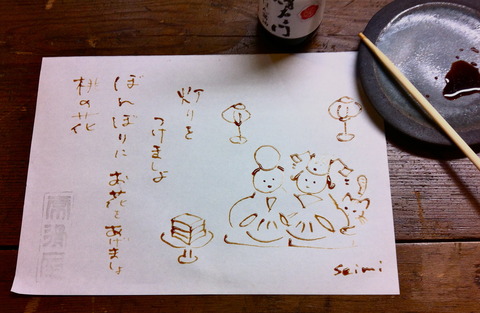 灯りを
つけましょ
ぼんぼりに お花をあげましょ
桃の花
seimi